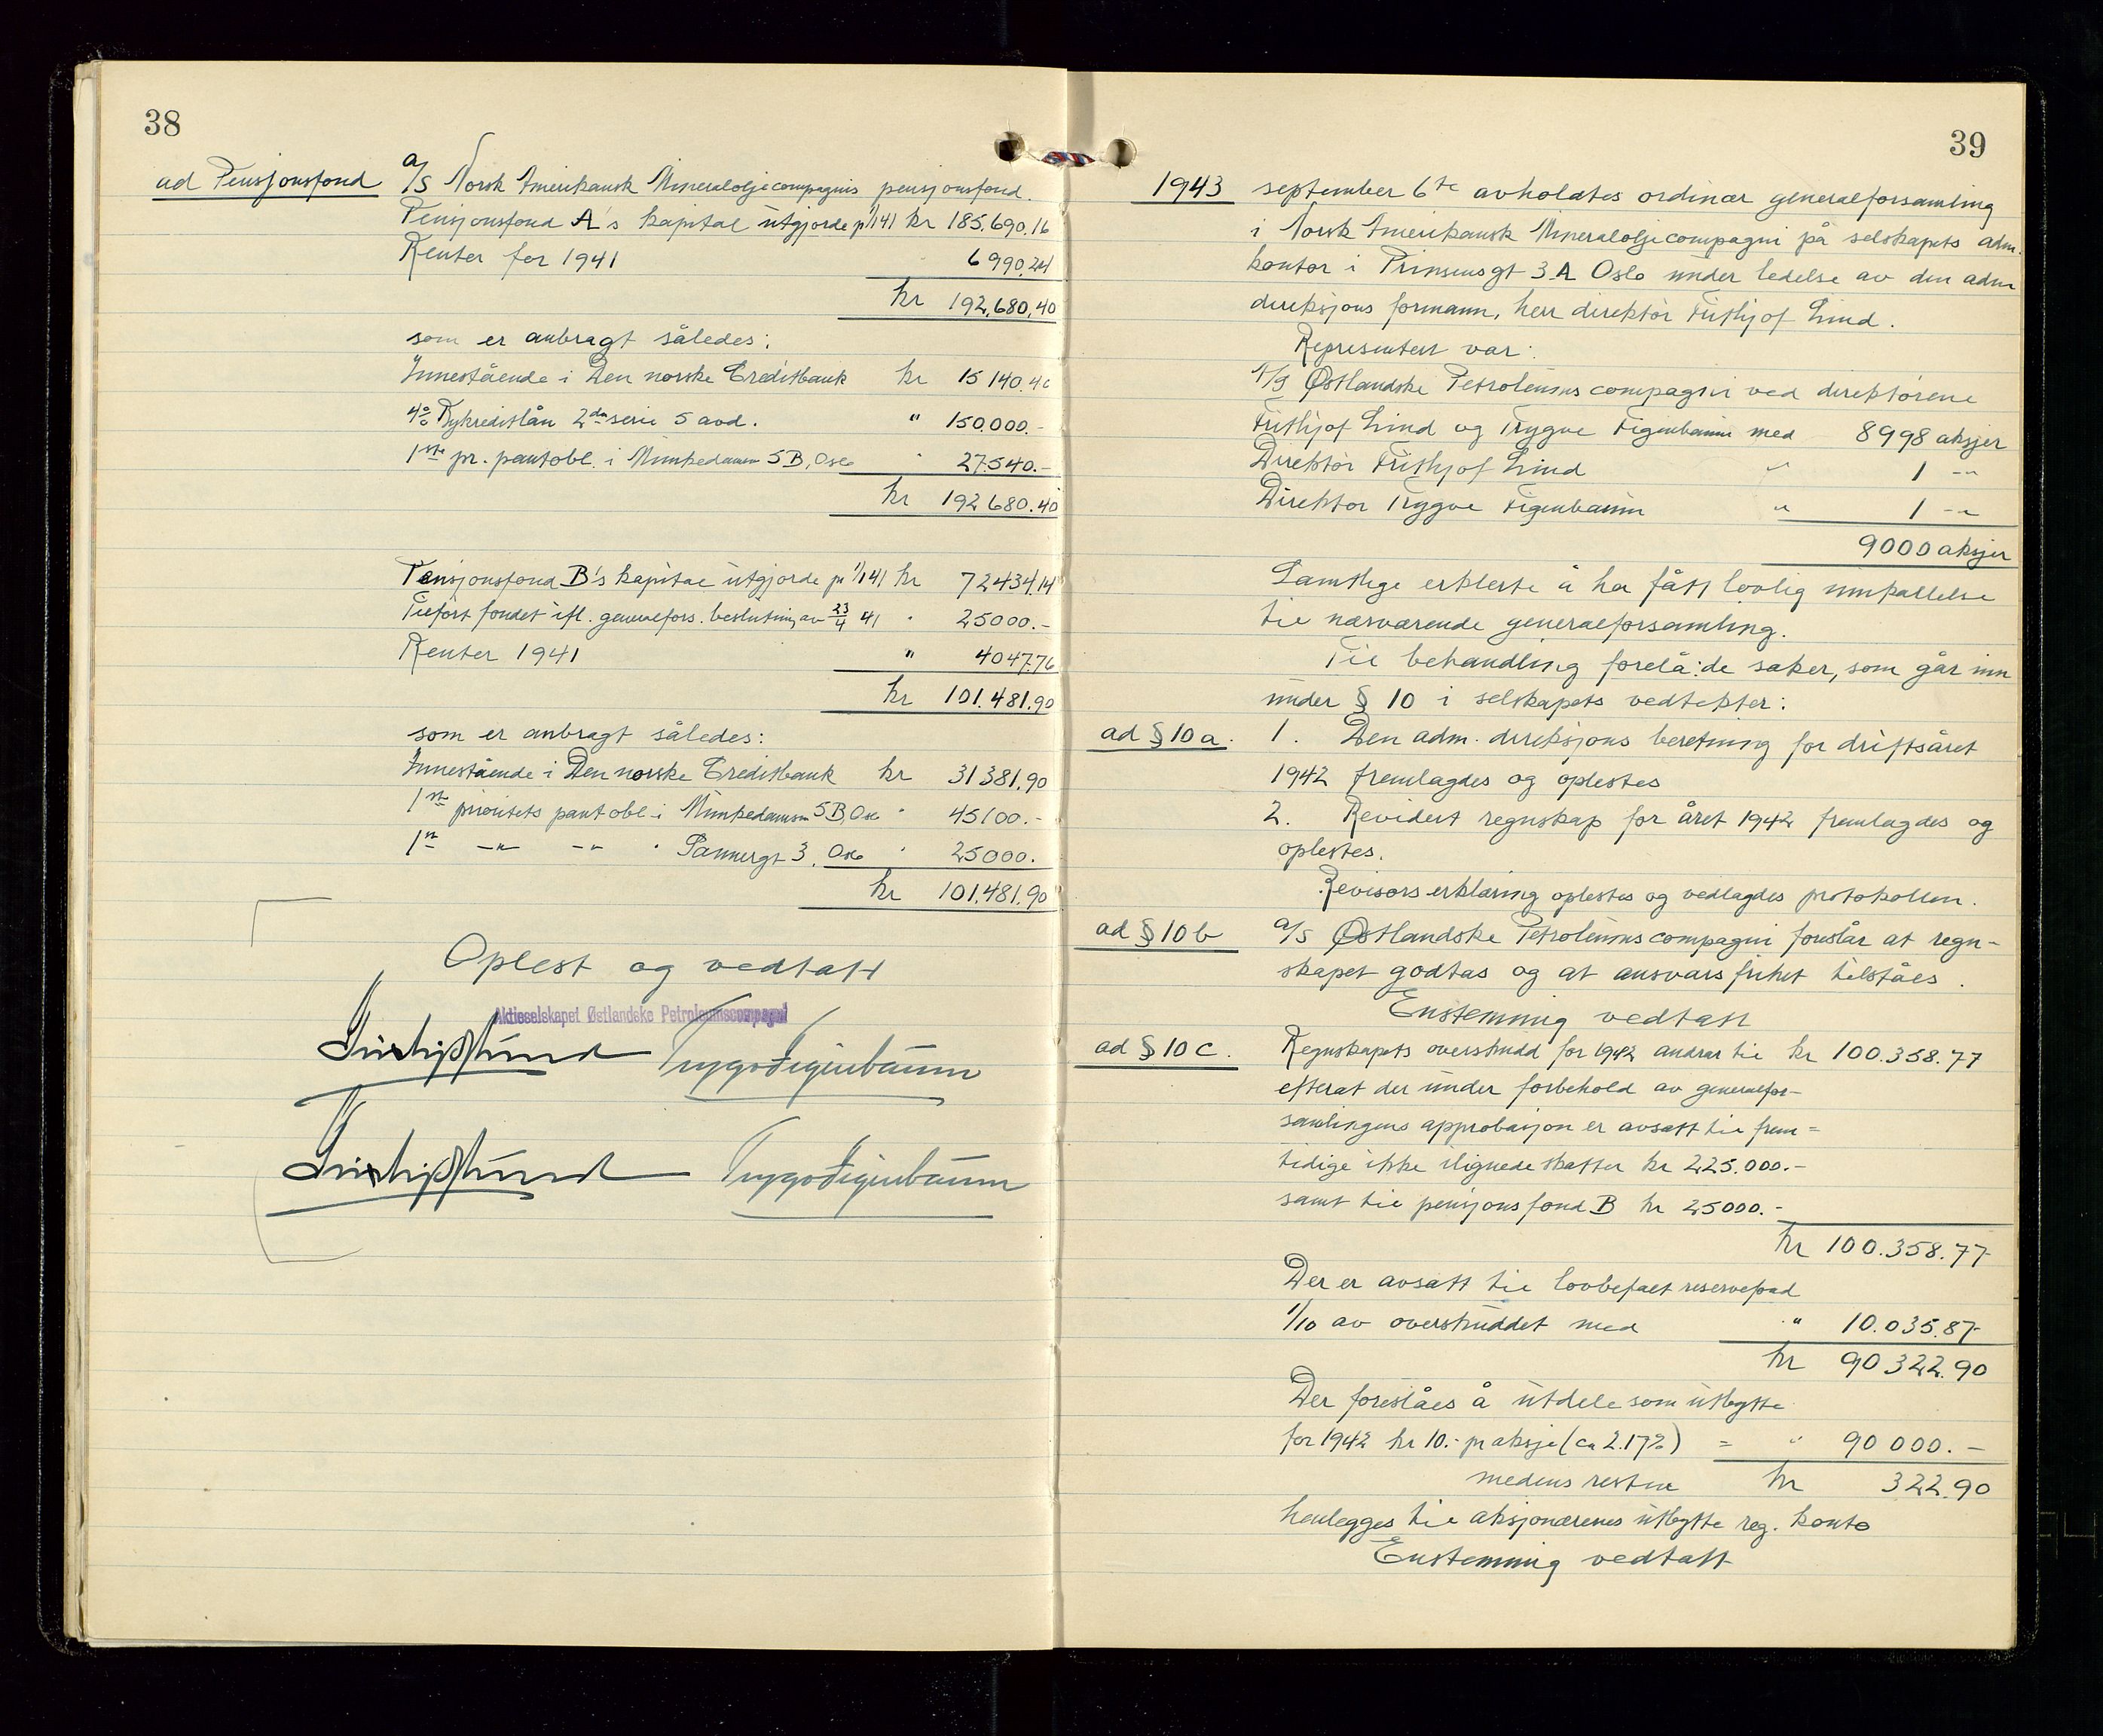 38
ad Pensjonsfond
A/S Norsk Amerikansk Mineraloljecompagnis pensjonsfond.
Pensjonsfond A's kapital utgjorde pr 1/1 41 kr 185.690.16
Renter for 1941 6990,24
kr 192,680,40
som er anbragt således:
Innestående i Den norske Creditbank kr 15 140.40
4% Bykreditlån 2den serie 5 avd. " 150.000.-
1ste pr. pantobl. i Munkedamsv 5B, Oslo " 27.540.-
kr 192 680.40
Pensjonsfond B's kapital utgjorde pr 1/1 41 kr 72434,14
Tilført fondet ifl. generalfors. beslutning av 23/4 41 " 25000.-
Renter 1941 " 4047.76
kr 101.481.90
som er anbragt således:
Innestående i Den norske Creditbank kr 31381,90
1ste prioritets pantobl. i Munkedamsv 5B, Oslo " 45100.-
1ste -"- -"- " Sannergt 3, Oslo " 25000.
kr 101.481.90
Oplest og vedtatt
Aktieselskapet Østlandske Petroleumscompagni
Frithjof Lind Trygve Figenbaum
Frithjof Lind Trygve Figenbaum
39
1943 september 6te avholdtes ordinær generalforsamling
i Norsk Amerikansk Mineraloljecompagni på selskapets adm.
kontor i Prinsensgt 3A Oslo under ledelse av den adm
direksjons formann, herr direktør Frithjof Lind.
Representert var:
A/S Østlandske Petroleumscompagni ved direktørene
Frithjof Lind og Trygve Figenbaum med 8998 aksjer
Direktør Frithjof Lind " 1 -"-
Direktør Trygve Figenbaum " 1 -"-
9000 aksjer
Samtlige erklerte å ha fått lovlig innkallelse
til nærværende generalforsamling.
Til behandling forelå: de saker, som går inn
under § 10 i selskapets vedtekter:
ad § 10 a. 1. Den adm. direksjons beretning for driftsåret
1942 fremlagdes og oplestes
2. Revidert regnskap for året 1942 fremlagdes og
oplestes.
Revisors erklæring oplestes og vedlagdes protokollen.
ad § 10 b A/S Østlandske Petroleumscompagni foreslår at regn-
skapet godtas og at ansvarsfrihet tilståes.
Enstemmig vedtatt
ad § 10 c. Regnskapets overskudd for 1942 andrar til kr 100.358.77
efterat der under forbehold av generalfor-
samlingens approbasjon er avsatt til frem=
tidige ikke ilignede skatter kr 225.000.-
samt til pensjonsfond B kr 25000.-
kr 100.358.77
Der er avsatt til lovbefalt reservefond
1/10 av overskuddet med " 10.035.87
kr 90322.90
Der foreslåes å utdele som utbytte
for 1942 kr 10.- pr aksje (ca 2.17%) = " 90 000.-
medens resten kr 322.90
henlegges til aksjonærenes utbytte reg. konto
Enstemmig vedtatt